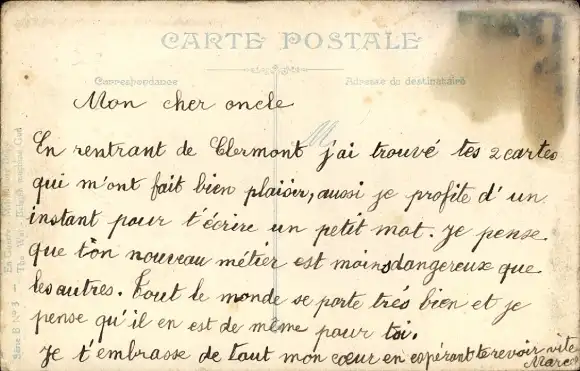 CARTE POSTALE
Correspondance
Adresse du destinataire
Mon cher oncle
M
En rentrant de Clermont j'ai trouvé tes 2 cartes
qui m'ont fait bien plaisir, aussi je profite d'un
instant pour t'écrire un petit mot. Je pense
que ton nouveau métier est moins dangereux que
les autres. Tout le monde se porte très bien et je
pense qu'il en est de même pour toi.
Je t'embrasse de tout mon cœur en espérant te revoir vite
Marcel
Série B N° 3
The War